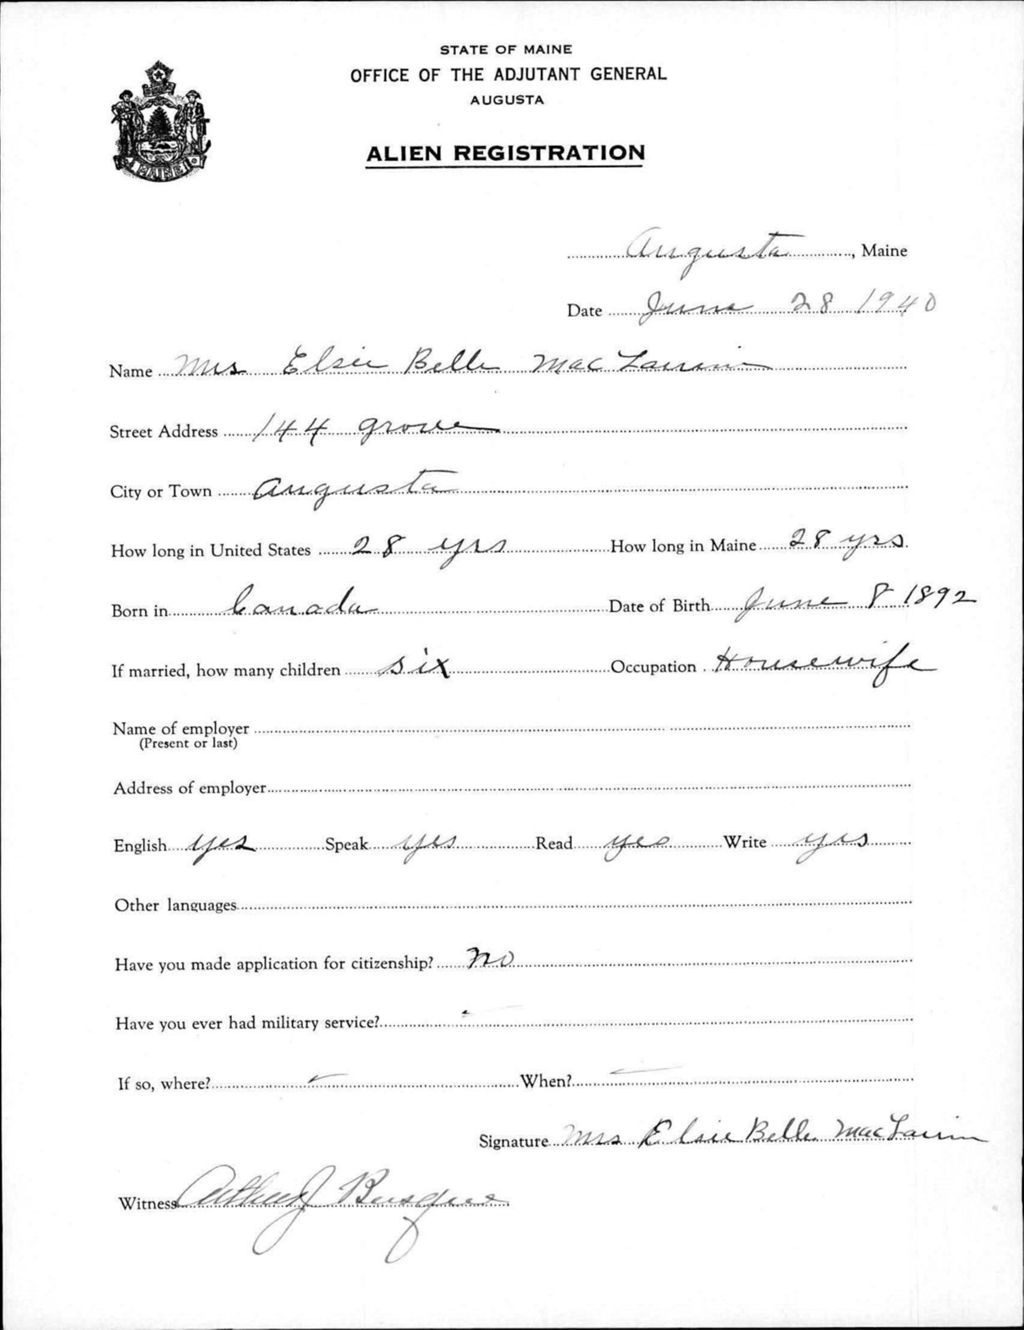 STATE OF MAINE
OFFICE OF THE ADJUTANT GENERAL
AUGUSTA
ALIEN REGISTRATION
MAINE
Augusta, Maine
Date June 28 1940
Name Mrs Elsie Belle MacLaurin
Street Address 144 Grove
City or Town Augusta
How long in United States 28 yrs How long in Maine 28 yrs
Born in Canada Date of Birth June 8 1892
If married, how many children six Occupation Housewife
Name of employer
(Present or last)
Address of employer
English yes Speak yes Read yes Write yes
Other languages
Have you made application for citizenship? no
Have you ever had military service? -
If so, where? - When? -
Signature Mrs Elsie Belle MacLaurin
Witness Arthur J Busque